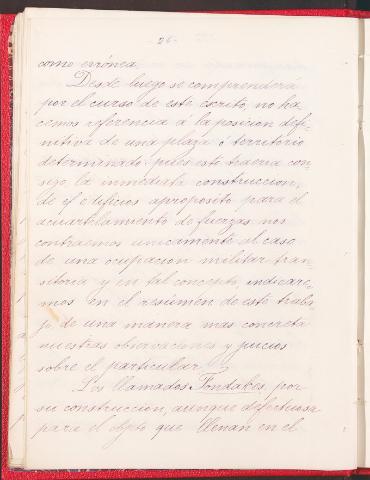 - 26 -
como errónea.
Desde luego se comprenderá
por el curso de este escrito, no ha
cemos referencia á la posicion defi-
nitiva de una plaza ó territorio
determinado pues esto traeria con
sigo la inmediata construccion,
de edificios aproposito para el
acuartelamiento de fuerzas nos
contraemos unicamente al caso
de una ocupacion militar tran-
sitoria y en tal concepto, indicare-
mos en el resúmen de este traba-
jo de una manera mas concreta
nuestras observaciones y juicios
sobre el particular
Los llamados Fondakes, por
su construccion, aunque defectuosa
para el objeto que llenan en el